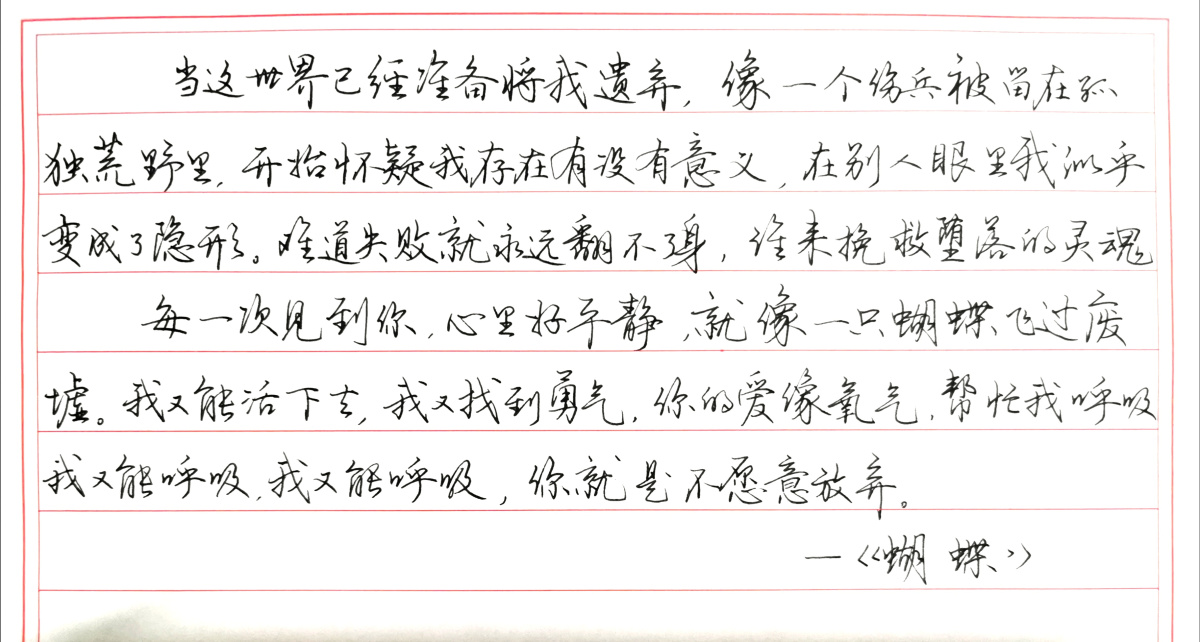 当这世界已经准备将我遗弃，像一个伤兵被留在孤
独荒野里，开始怀疑我存在有没有意义，在别人眼里我似乎
变成了隐形。难道失败就永远翻不了身，谁来挽救堕落的灵魂
每一次见到你，心里好平静，就像一只蝴蝶飞过废
墟。我又能活下去，我又找到勇气，你的爱像氧气，帮忙我呼吸
我又能呼吸，我又能呼吸，你就是不愿意放弃。
—《蝴蝶》